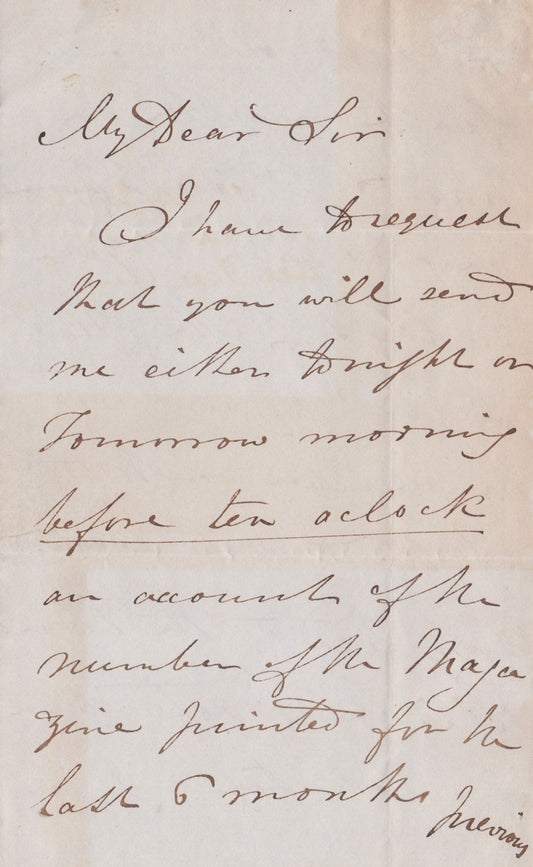 My Dear Sir
I have to request
that you will send
me either tonight or
Tomorrow morning
before ten oclock
an account of the
number of the Maga
zine printed for the
last 6 months
previous